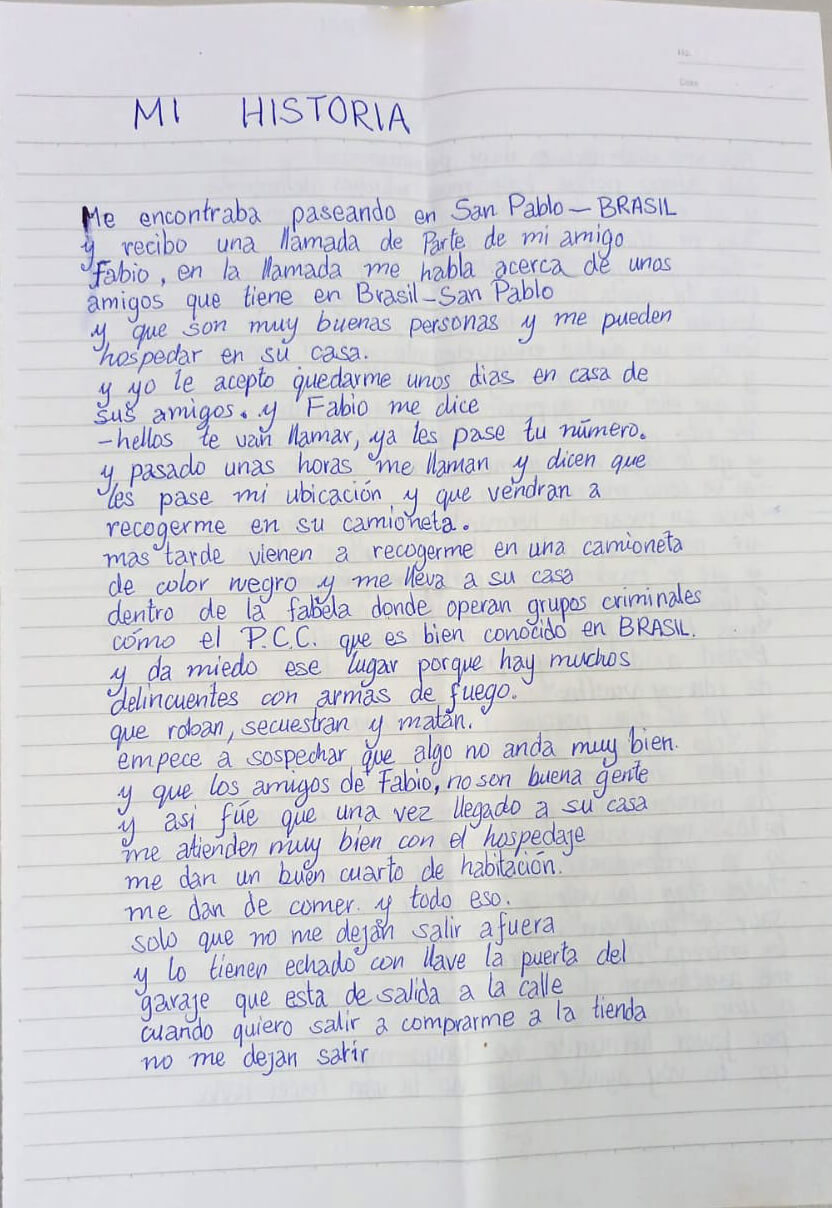 No.
Date
MI HISTORIA
Me encontraba paseando en San Pablo - BRASIL
y recibo una llamada de Parte de mi amigo
Fabio, en la llamada me habla acerca de unos
amigos que tiene en Brasil - San Pablo
y que son muy buenas personas y me pueden
hospedar en su casa.
y yo le acepto quedarme unos dias en casa de
sus amigos. y Fabio me dice
- hellos te van llamar, ya les pase tu número.
y pasado unas horas me llaman y dicen que
les pase mi ubicación y que vendran a
recogerme en su camioneta.
mas tarde vienen a recogerme en una camioneta
de color negro y me lleva a su casa
dentro de la fabela donde operan grupos criminales
como el P.C.C. que es bien conocido en BRASIL.
y da miedo ese lugar porque hay muchos
delincuentes con armas de fuego.
que roban, secuestran y matan.
empece a sospechar que algo no anda muy bien.
y que los amigos de Fabio, no son buena gente
y asi fúe que una vez llegado a su casa
me atienden muy bien con el hospedaje
me dan un buen cuarto de habitación.
me dan de comer. y todo eso.
solo que no me dejan salir afuera
y lo tienen echado con llave la puerta del
garaje que esta de salida a la calle
cuando quiero salir a comprarme a la tienda
no me dejan salir